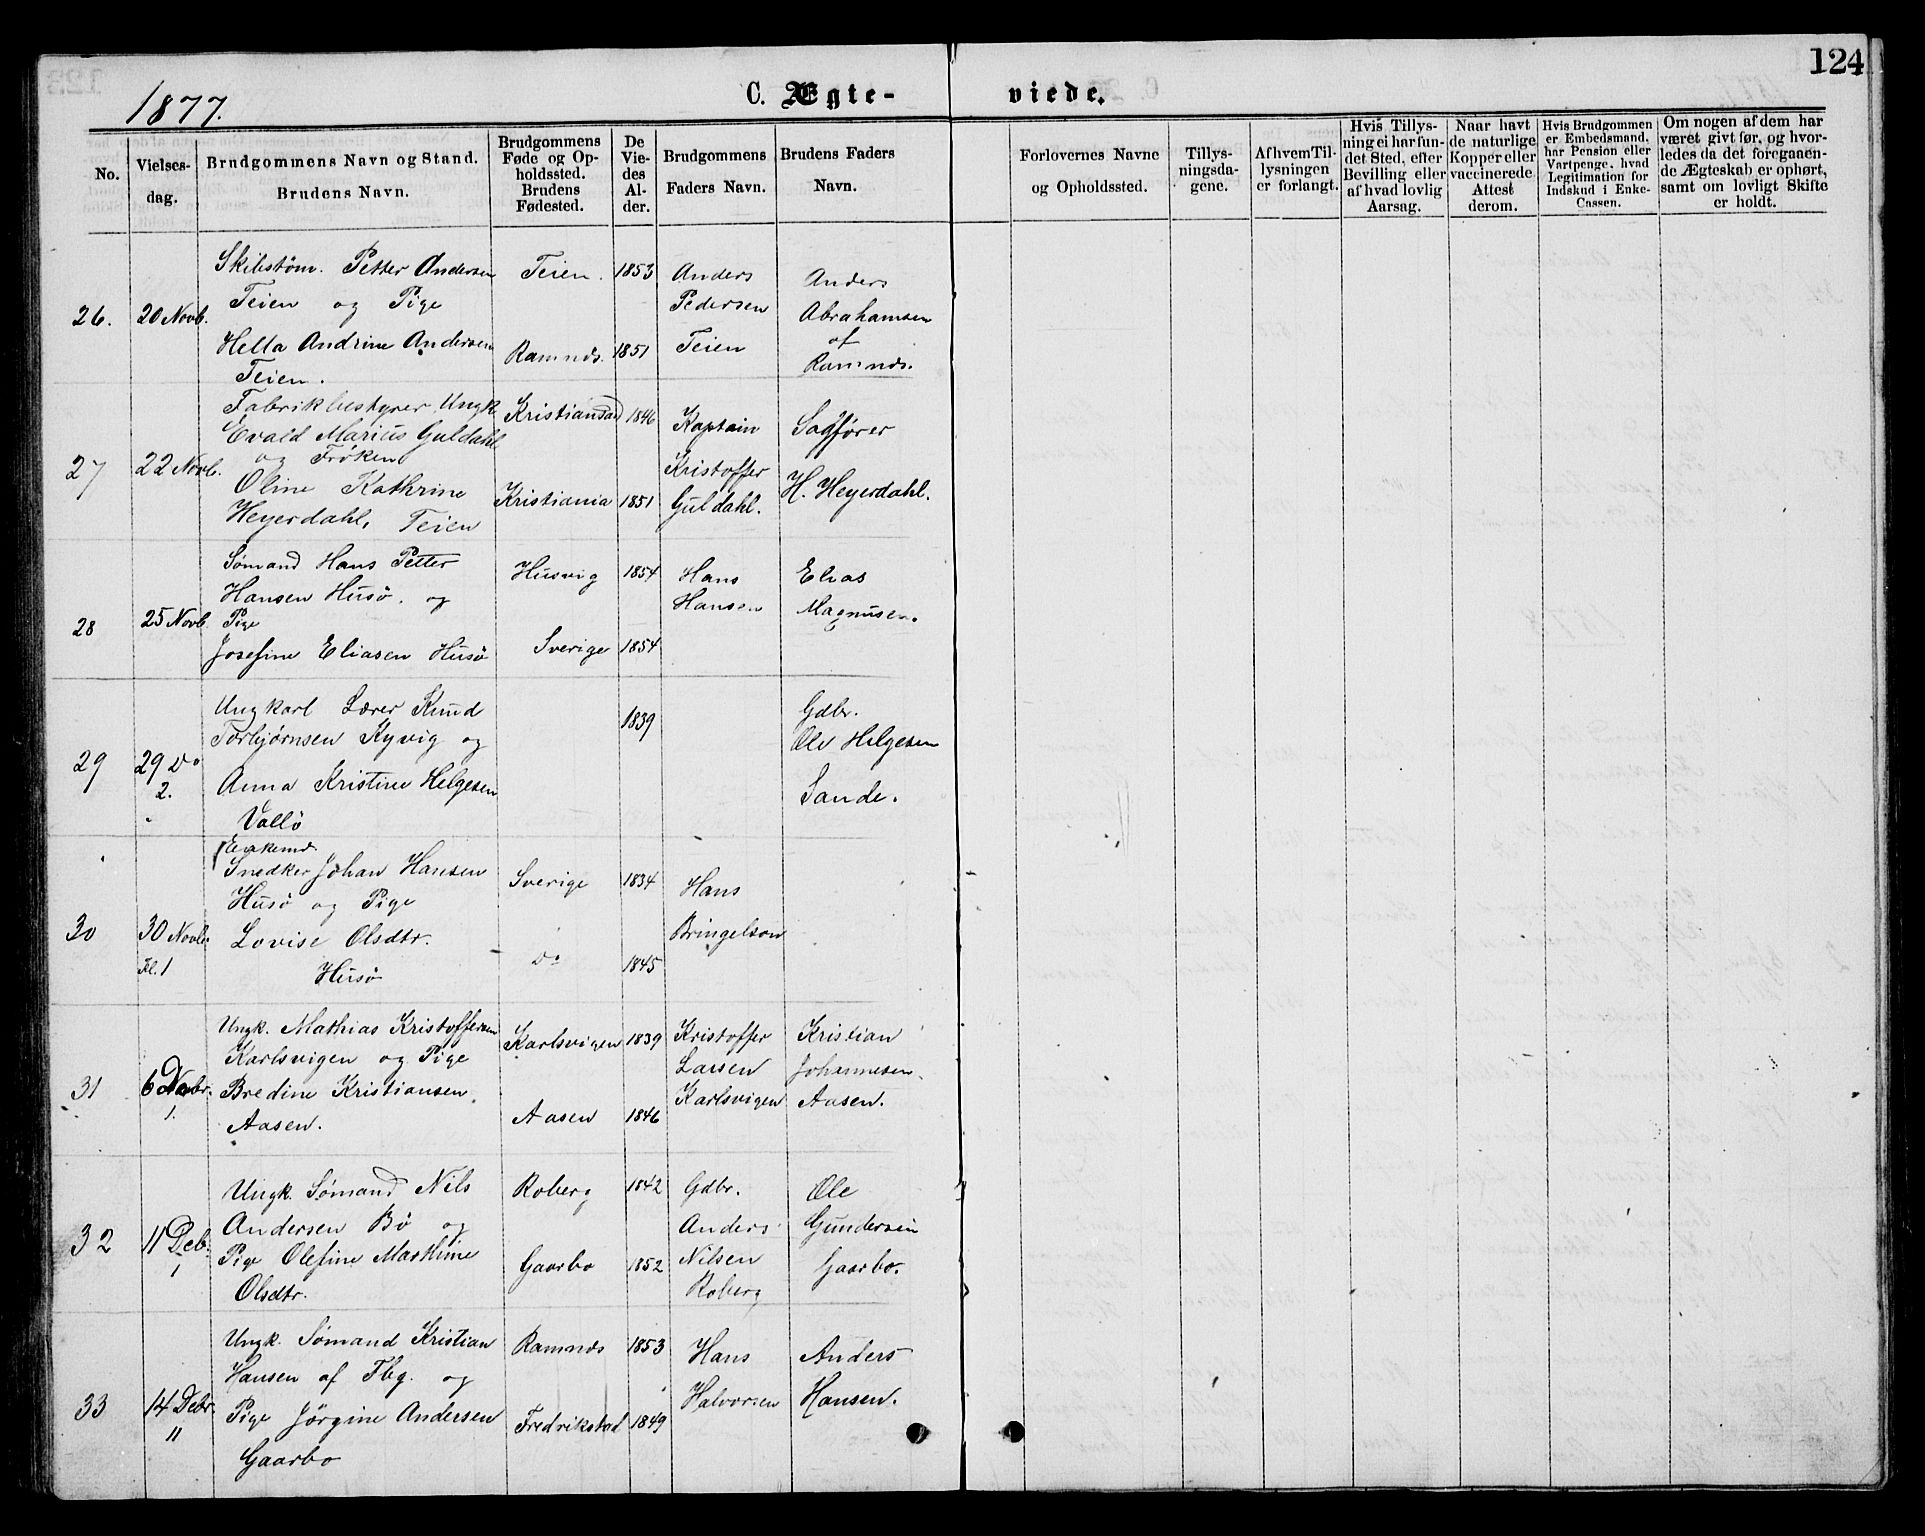 124
1877.
C. Ægte-
viede.
No.
Vielses-
dag.
Brudgommens Navn og Stand.
Brudens Navn.
Brudgommens
Føde og Op-
holdssted.
Brudens
Fødested.
De
Vie-
des
Al-
der.
Brudgommens
Faders Navn.
Brudens Faders
Navn.
Forlovernes Navne
og Opholdssted.
Tillys-
ningsda-
gene.
Af hvem Til-
lysningen
er forlangt.
Hvis Tillys-
ning ei har fun-
det Sted, efter
Bevilling eller
af hvad lovlig
Aarsag.
Naar havt
de naturlige
Kopper eller
vaccinerede
Attest
derom.
Hvis Brudgommen
er Embedsmand,
har Pension eller
Vartpenge, hvad
Legitimation for
Indskud i Enke-
Cassen.
Om nogen af dem har
været givt før, og hvor-
ledes da det foregaaen-
de Ægteskab er ophørt,
samt om lovligt Skifte
er holdt.
26.
20 Novb.
Skibstøm. Petter Andersen
Teien og Pige
Hella Andrine Andersen
Teien.
Teien.
Ramnds.
1853
1851
Anders
Pedersen
Teien
Anders
Abrahamsen
af
Ramnds.
27
22 Novb.
Fabrikbestyrer, Ungk.
Evald Marius Guldahl
og Frøken
Oline Kathrine
Heyerdahl, Teien
Kristiansand
Kristiania
1846
1851
Kaptain
Kristoffer
Guldahl.
Sagfører
H. Heyerdahl.
28
25 Novb.
Sømand Hans Petter
Hansen Husø. og
Pige
Josefine Eliasen Husø
Husvig
Sverige
1854
1854
Hans
Hansen
Elias
Magnusen.
29
29 Do
2.
Ungkarl Lærer Knud
Torbjørnsen Kyvig og
Anna Kristine Helgesen
Vallø
1839
Gdbr.
Ole Helgesen
Sande.
30
30 Novbr
Kl. 1
Enkemd.
Snedker Johan Hansen
Husø og Pige
Lovise Olsdtr.
Husø
Sverige
Do
1834
1845
Hans
Bringelson
31
6 Debr.
1.
Ungk. Mathias Kristoffersen
Karlsvigen og Pige
Bredine Kristiansen,
Aasen.
Karlsvigen
Aasen
1839
1846
Kristoffer
Larsen
Karlsvigen
Kristian
Johannesen
Aasen.
32
11 Deb.
1
Ungk. Sømand Nils
Andersen Bø og
Pige Olefine Marthine
Olsdtr.
Roberg
Gaarbo
1842
1852
Gdbr.
Anders
Nilsen
Roberg
Ole
Gundersen
Gaarbo.
33
14 Debr.
11
Ungk. Sømand Kristian
Hansen af Fbg. og
Pige Jørgine Andersen
Gaarbo
Ramnds
Fredrikstad
1853
1849
Hans
Halvorsen
Anders
Hansen.